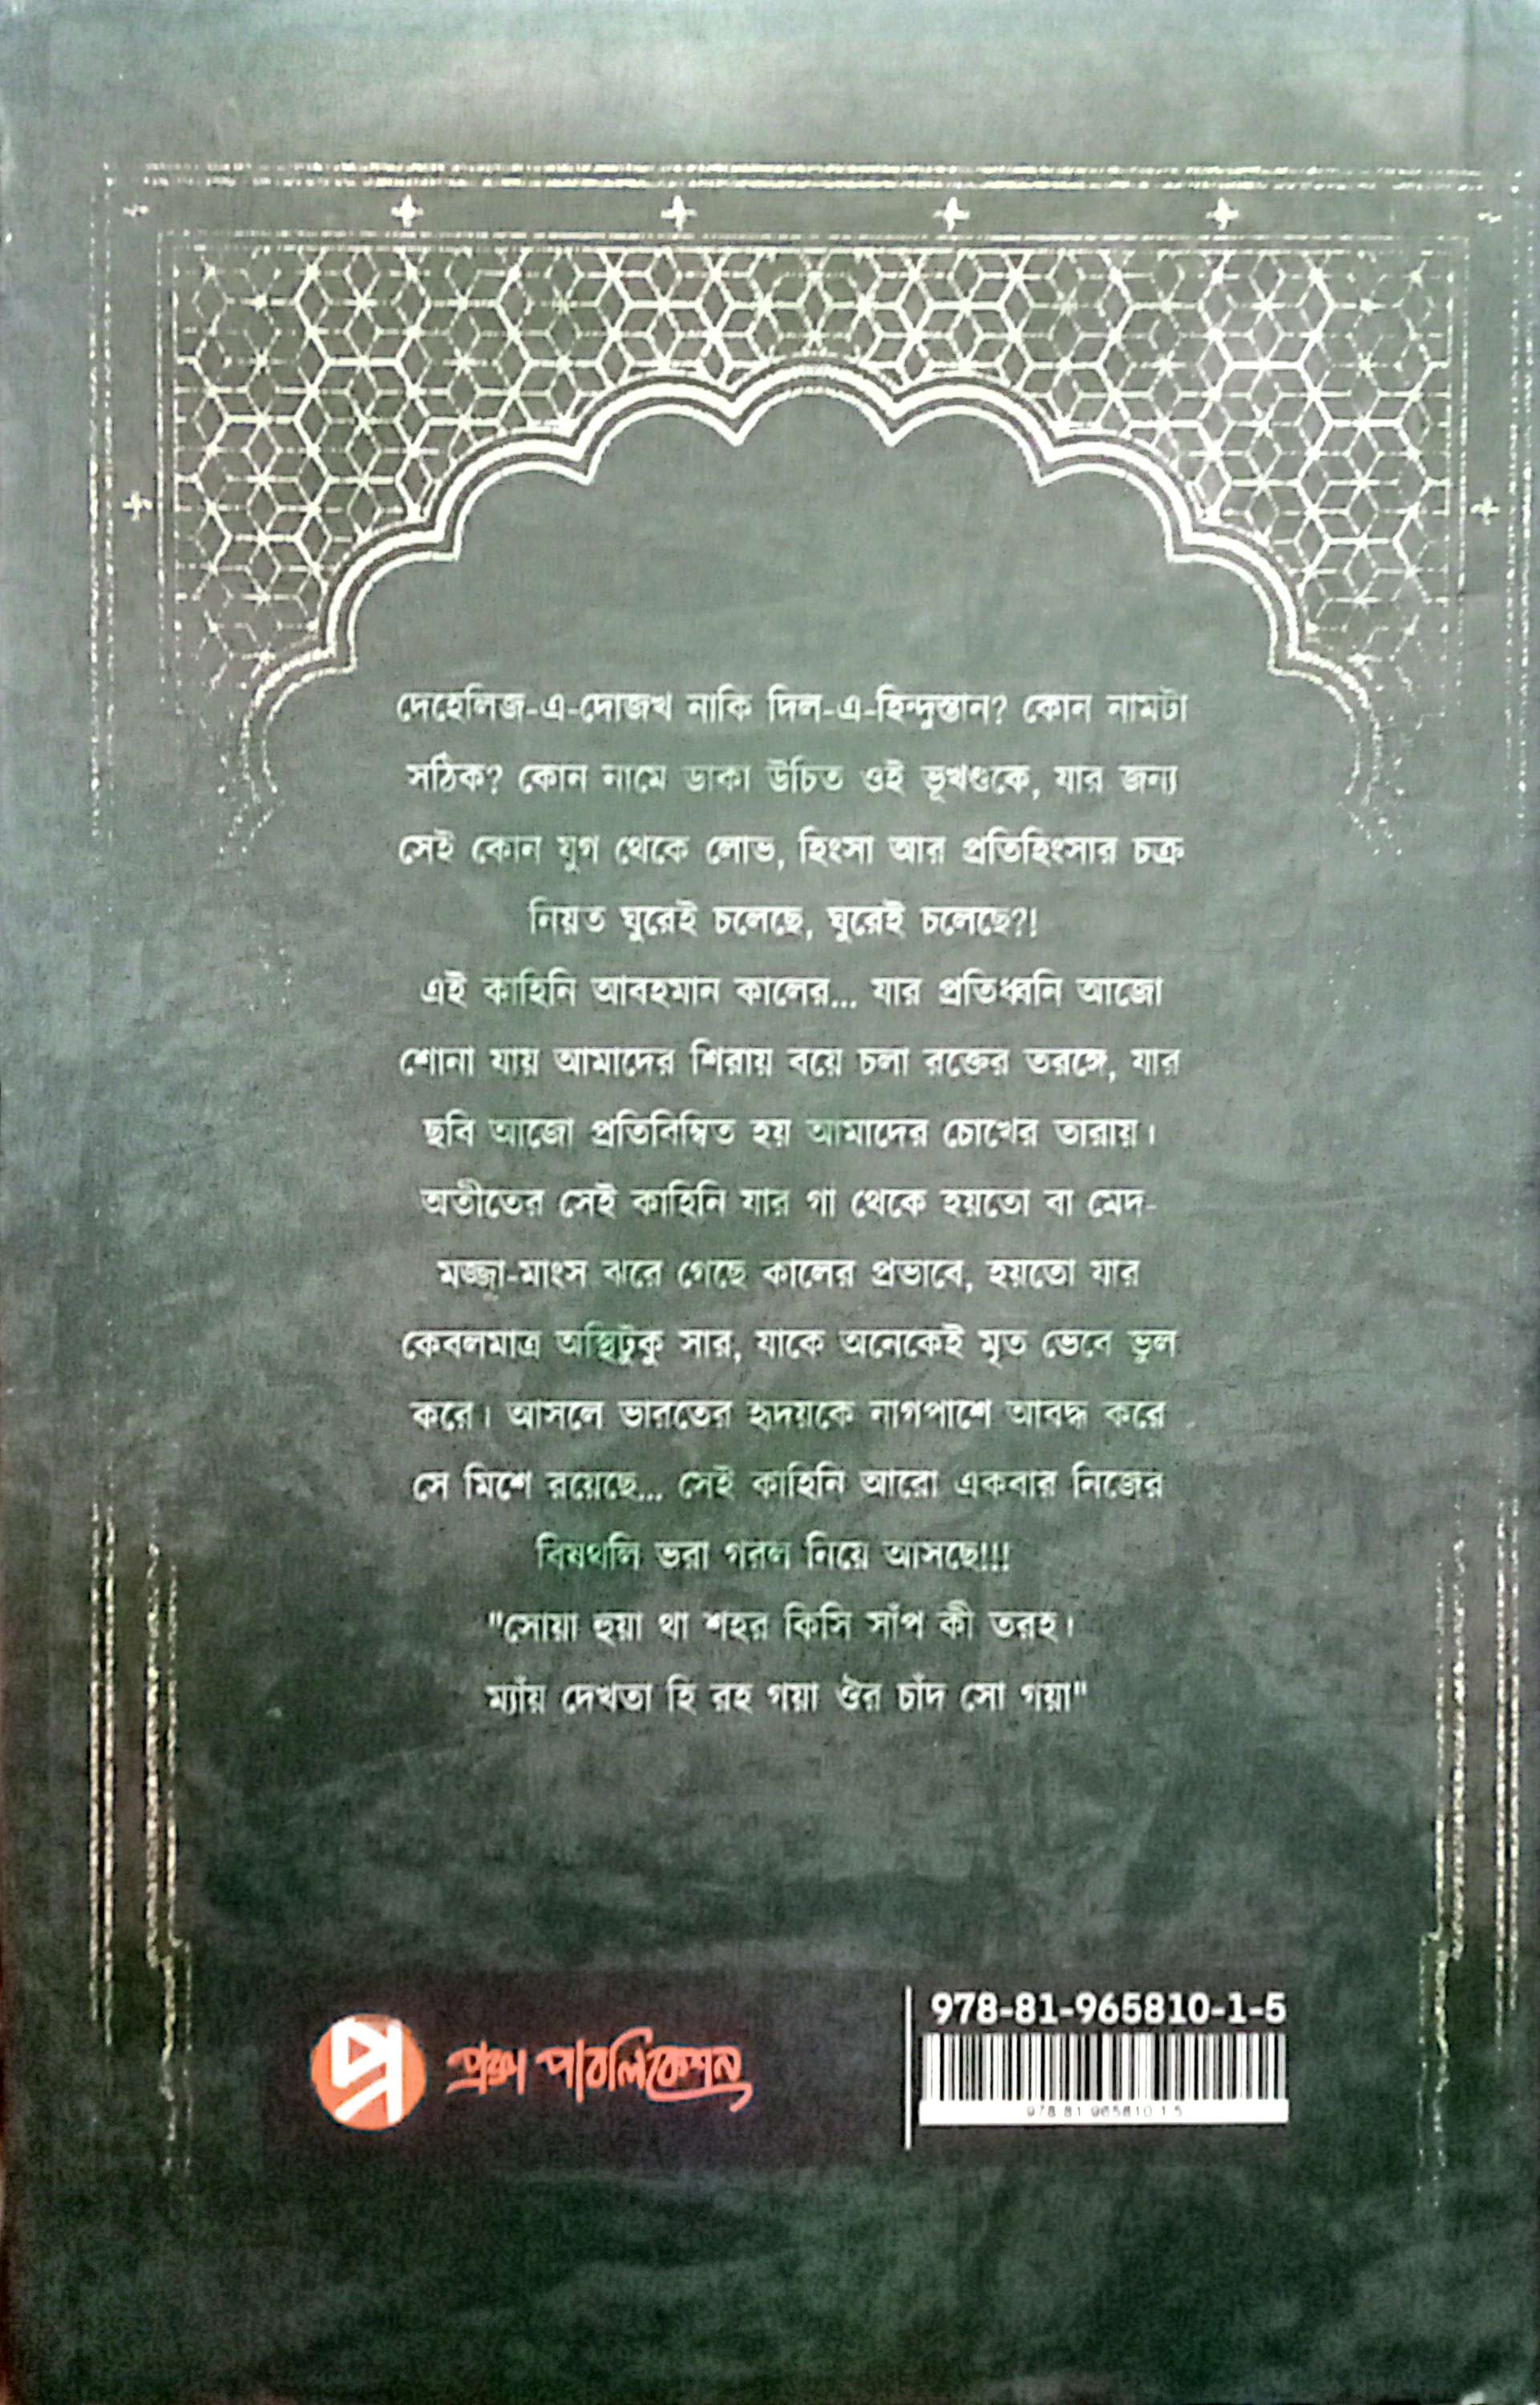 দেহেলিজ-এ-দোজখ নাকি দিল-এ-হিন্দুস্তান? কোন নামটা
সঠিক? কোন নামে ডাকা উচিত ওই ভূখণ্ডকে, যার জন্য
সেই কোন যুগ থেকে লোভ, হিংসা আর প্রতিহিংসার চক্র
নিয়ত ঘুরেই চলেছে, ঘুরেই চলেছে?!
এই কাহিনি আবহমান কালের... যার প্রতিধ্বনি আজো
শোনা যায় আমাদের শিরায় বয়ে চলা রক্তের তরঙ্গে, যার
ছবি আজো প্রতিবিম্বিত হয় আমাদের চোখের তারায়।
অতীতের সেই কাহিনি যার গা থেকে হয়তো বা মেদ-
মজ্জা-মাংস ঝরে গেছে কালের প্রভাবে, হয়তো যার
কেবলমাত্র অস্থিটুকু সার, যাকে অনেকেই মৃত ভেবে ভুল
করে। আসলে ভারতের হৃদয়কে নাগপাশে আবদ্ধ করে
সে মিশে রয়েছে... সেই কাহিনি আরো একবার নিজের
বিষথলি ভরা গরল নিয়ে আসছে!!!
"সোয়া হুয়া থা শহর কিসি সাঁপ কী তরহ।
ম্যাঁয় দেখতা হি রহ গয়া ঔর চাঁদ সো গয়া"
978-81-965810-1-5
প্র পাবলিকেশন
978-81-965810-1-5